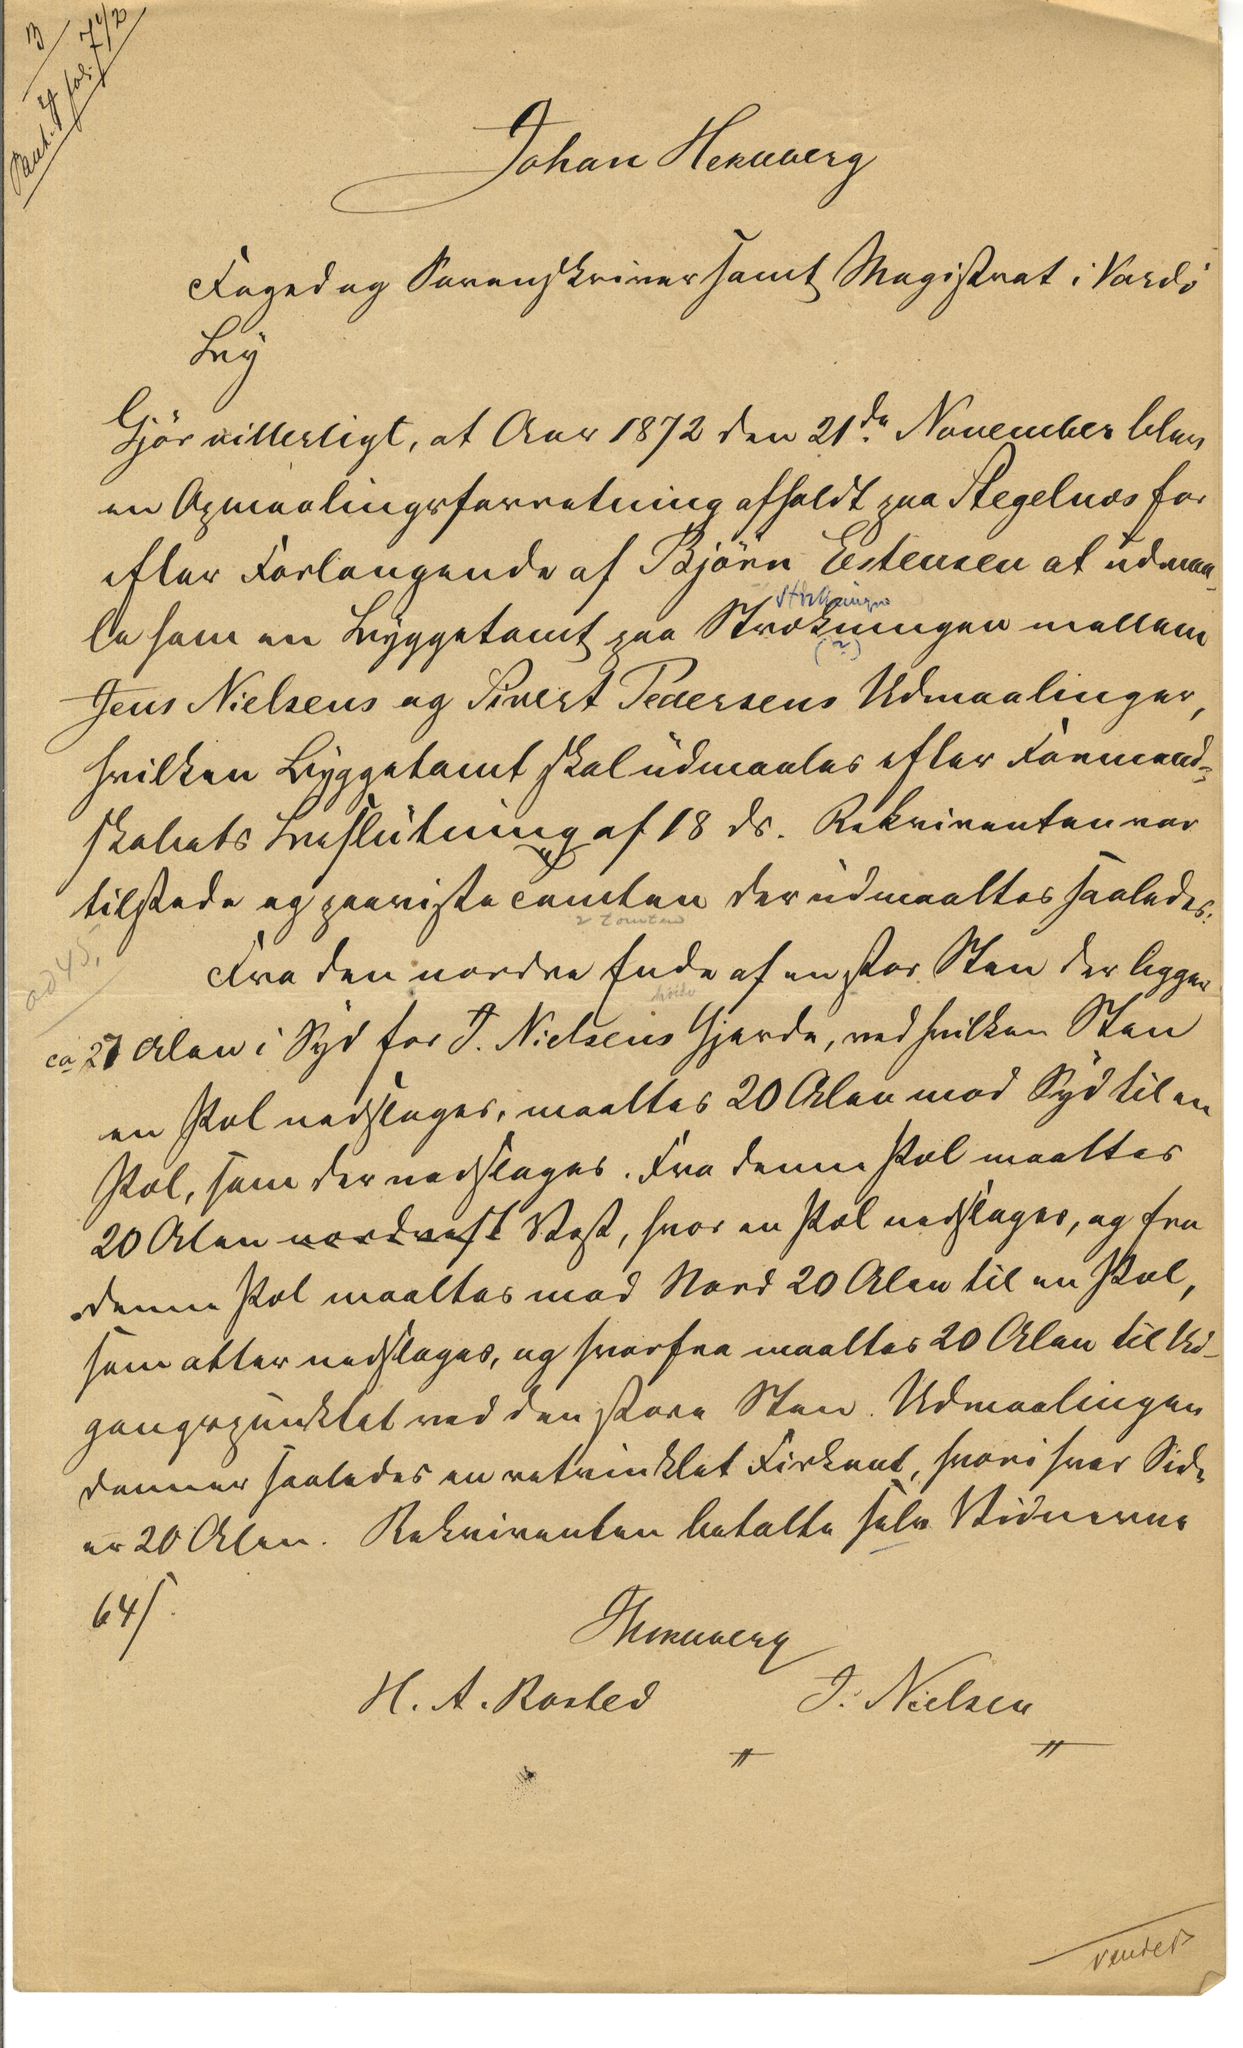 B
Pant. 4 fol. 712
Johan Hernberg
Foged og Sorenskriver samt Magistrat i Vardö
By
Gjör vitterligt, at Aar 1872 den 21de November blev
en Opmaalingsforretning afholdt paa Stegelnæs for
efter Forlangende af Björn Estensen at udmaa-
le ham en Byggetomt paa Strækningen mellem
(?)
Jens Nielsens og Sivert Pedersens Udmaalinger,
hvilken Byggetomt skal udmaales efter Formand-
skabets Beslutning af 18 ds. Rekvirenten var
tilstede og paaviste Tomten der udmaaltes saaledes:
? tomten
Fra den nordre Ende af en stor Sten der ligger
ca 27 Alen i Syd for J. Nielsens Gjerde, ved hvilken Sten
en Pæl nedslages, maaltes 20 Alen mod Syd til en
Pæl, som der nedslages. Fra denne Pæl maaltes
20 Alen nordvest Vest, hvor en Pæl nedslages, og fra
denne Pæl maaltes mod Nord 20 Alen til en Pæl,
som atter nedslages, og hvorfra maaltes 20 Alen til Ud-
gangspunktet ved den store Sten. Udmaalingen
danner saaledes en retvinklet Firkant, hvori hver Side
er 20 Alen. Rekvirenten betalte selv Vidnerne
64 s.
JHernberg
H. A. Rosted J. Nielsen
" "
vendes